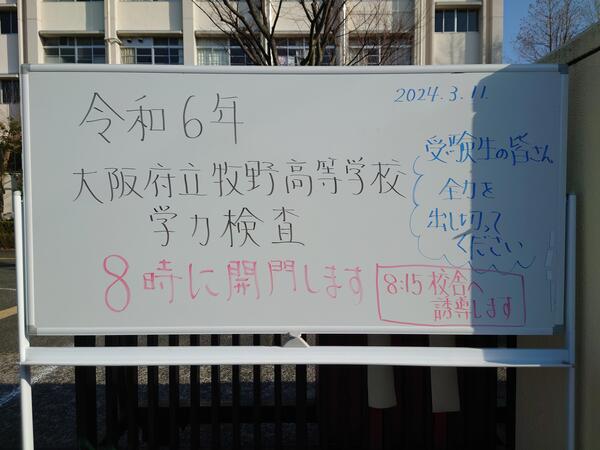 2024.3.11.
令和6年
大阪府立牧野高等学校
学力検査
受験生の皆さん
全力を
出し切って
ください
8時に開門します
8:15 校舎へ
誘導します